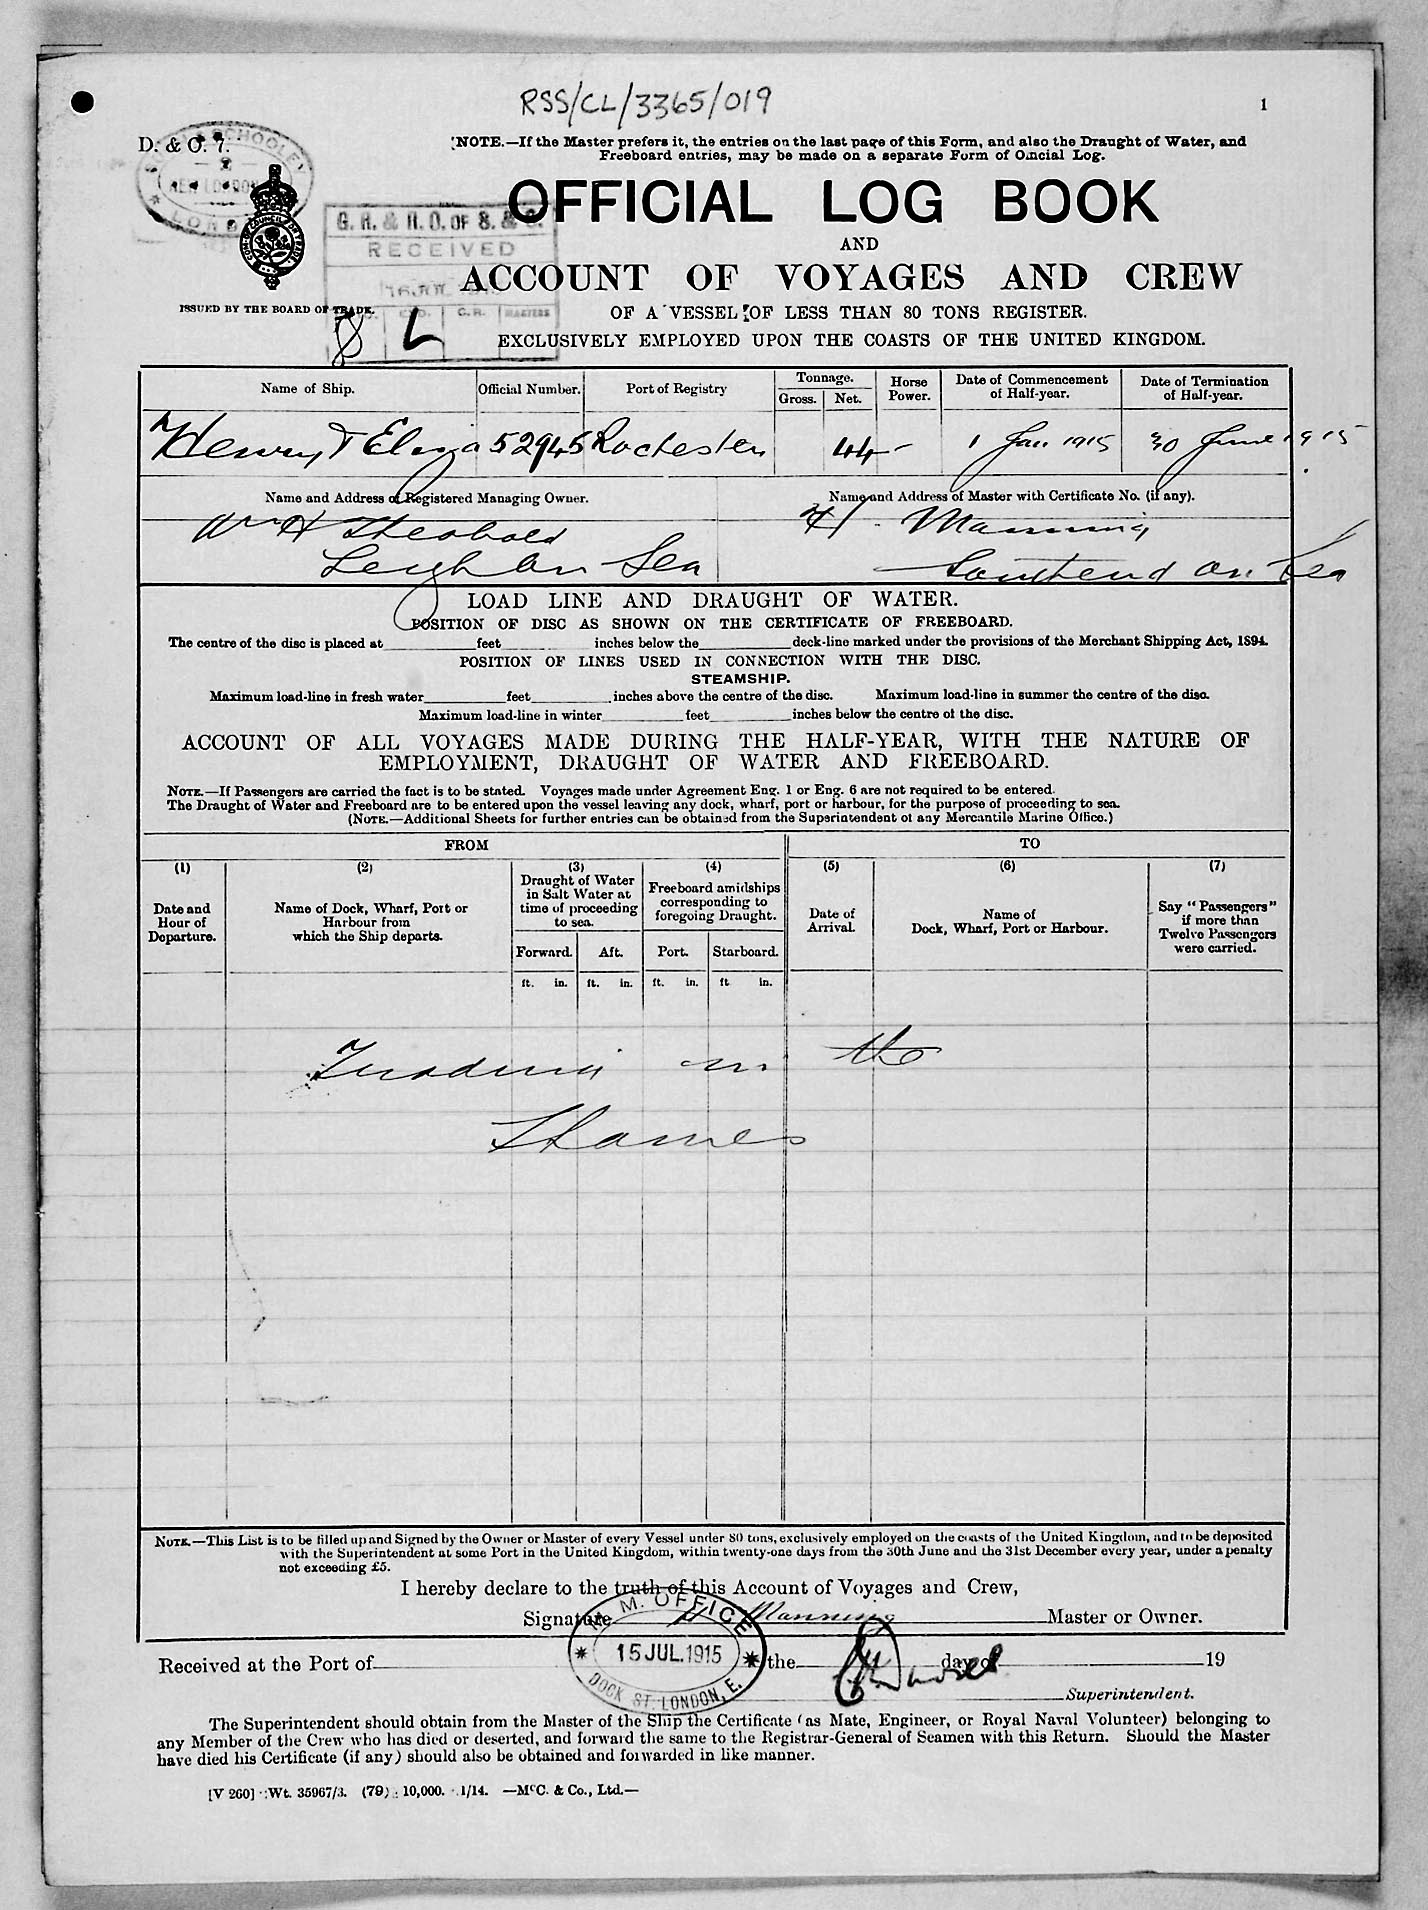 RSS/CL/3365/019
1
D. & O. 7.
NOTE.—If the Master prefers it, the entries on the last page of this Form, and also the Draught of Water, and
Freeboard entries, may be made on a separate Form of Official Log.
OFFICIAL LOG BOOK
G. R. & R. O. OF S. & S.
RECEIVED
16 JUL
AND
ACCOUNT OF VOYAGES AND CREW
ISSUED BY THE BOARD OF TRADE.
C.R. MASTERS
L
OF A VESSEL OF LESS THAN 80 TONS REGISTER.
EXCLUSIVELY EMPLOYED UPON THE COASTS OF THE UNITED KINGDOM.
Name of Ship. Official Number. Port of Registry Tonnage. Gross. Net. Horse Power. Date of Commencement of Half-year. Date of Termination of Half-year.
Henry & Eliza 52945 Rochester 44 - 1 Jan 1915 30 June 1915
Name and Address of Registered Managing Owner. Name and Address of Master with Certificate No. (if any).
Wm H Theobald H. Manning
Leigh on Sea Southend on Sea
LOAD LINE AND DRAUGHT OF WATER.
POSITION OF DISC AS SHOWN ON THE CERTIFICATE OF FREEBOARD.
The centre of the disc is placed at feet inches below the deck-line marked under the provisions of the Merchant Shipping Act, 1894.
POSITION OF LINES USED IN CONNECTION WITH THE DISC.
STEAMSHIP.
Maximum load-line in fresh water feet inches above the centre of the disc. Maximum load-line in summer the centre of the disc.
Maximum load-line in winter feet inches below the centre of the disc.
ACCOUNT OF ALL VOYAGES MADE DURING THE HALF-YEAR, WITH THE NATURE OF
EMPLOYMENT, DRAUGHT OF WATER AND FREEBOARD.
NOTE.—If Passengers are carried the fact is to be stated. Voyages made under Agreement Eng. 1 or Eng. 6 are not required to be entered.
The Draught of Water and Freeboard are to be entered upon the vessel leaving any dock, wharf, port or harbour, for the purpose of proceeding to sea.
(NOTE.—Additional Sheets for further entries can be obtained from the Superintendent of any Mercantile Marine Office.)
FROM TO
(1) (2) (3) (4) (5) (6) (7)
Date and Hour of Departure.
Name of Dock, Wharf, Port or Harbour from which the Ship departs.
Draught of Water in Salt Water at time of proceeding to sea.
Freeboard amidships corresponding to foregoing Draught.
Date of Arrival.
Name of Dock, Wharf, Port or Harbour.
Say "Passengers" if more than Twelve Passengers were carried.
Forward. Aft. Port. Starboard.
ft. in. ft. in. ft. in. ft in.
Trading in the
Thames
NOTE.—This List is to be filled up and Signed by the Owner or Master of every Vessel under 80 tons, exclusively employed on the coasts of the United Kingdom, and to be deposited
with the Superintendent at some Port in the United Kingdom, within twenty-one days from the 30th June and the 31st December every year, under a penalty
not exceeding £5.
I hereby declare to the truth of this Account of Voyages and Crew,
Signature H Manning Master or Owner.
M. M. OFFICE
15 JUL. 1915
DOCK ST. LONDON, E.
Received at the Port of the day of 19
Superintendent.
The Superintendent should obtain from the Master of the Ship the Certificate (as Mate, Engineer, or Royal Naval Volunteer) belonging to
any Member of the Crew who has died or deserted, and forward the same to the Registrar-General of Seamen with this Return. Should the Master
have died his Certificate (if any) should also be obtained and forwarded in like manner.
[V 260] Wt. 35967/3. (79) 10,000. 1/14. —McC. & Co., Ltd.—